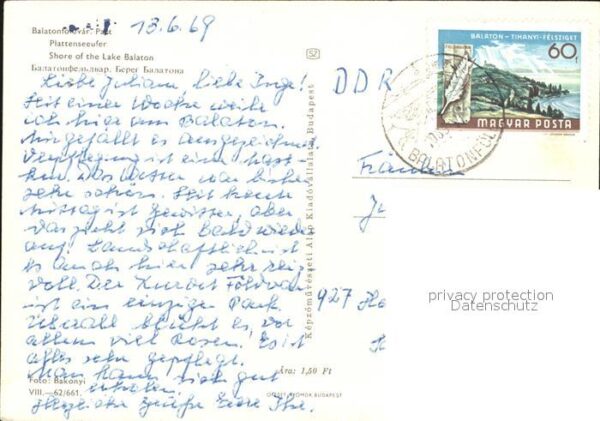 13.6.69
Balatonföldvár. Part
Plattenseeufer
Shore of the Lake Balaton
Балатонфельдвар. Берег Балатона
Liebe Juliane, liebe Inge!
Seit einer Woche weile
ich hier am Balaton.
Mir gefällt es ausgezeichnet
Verpflegung ist
Das Wetter war bisher
sehr schön. Seit heute
Mittag ist Gewitter, aber
das zieht sich bald wieder
auf. Landschaftlich ist
es auch hier sehr reiz-
voll. Der Kurort Földvár
ist ein einziger Park
Überall blüht es, vor
allem viel Rosen. Es ist
alles sehr gepflegt.
Man kann sich gut
erholen.
Herzliche Grüße Eure Ilse.
Foto: Bakonyi
VIII.—62/661.
Ára: 1,50 Ft
OFFSET NYOMDA BUDAPEST
Képzőművészeti Alap Kiadóvállalata, Budapest
DDR
BALATON - TIHANYI-FÉLSZIGET
60f
MAGYAR POSTA
BALATONFÖL
Fräulein
Ju
927 Ha
privacy protection
Datenschutz